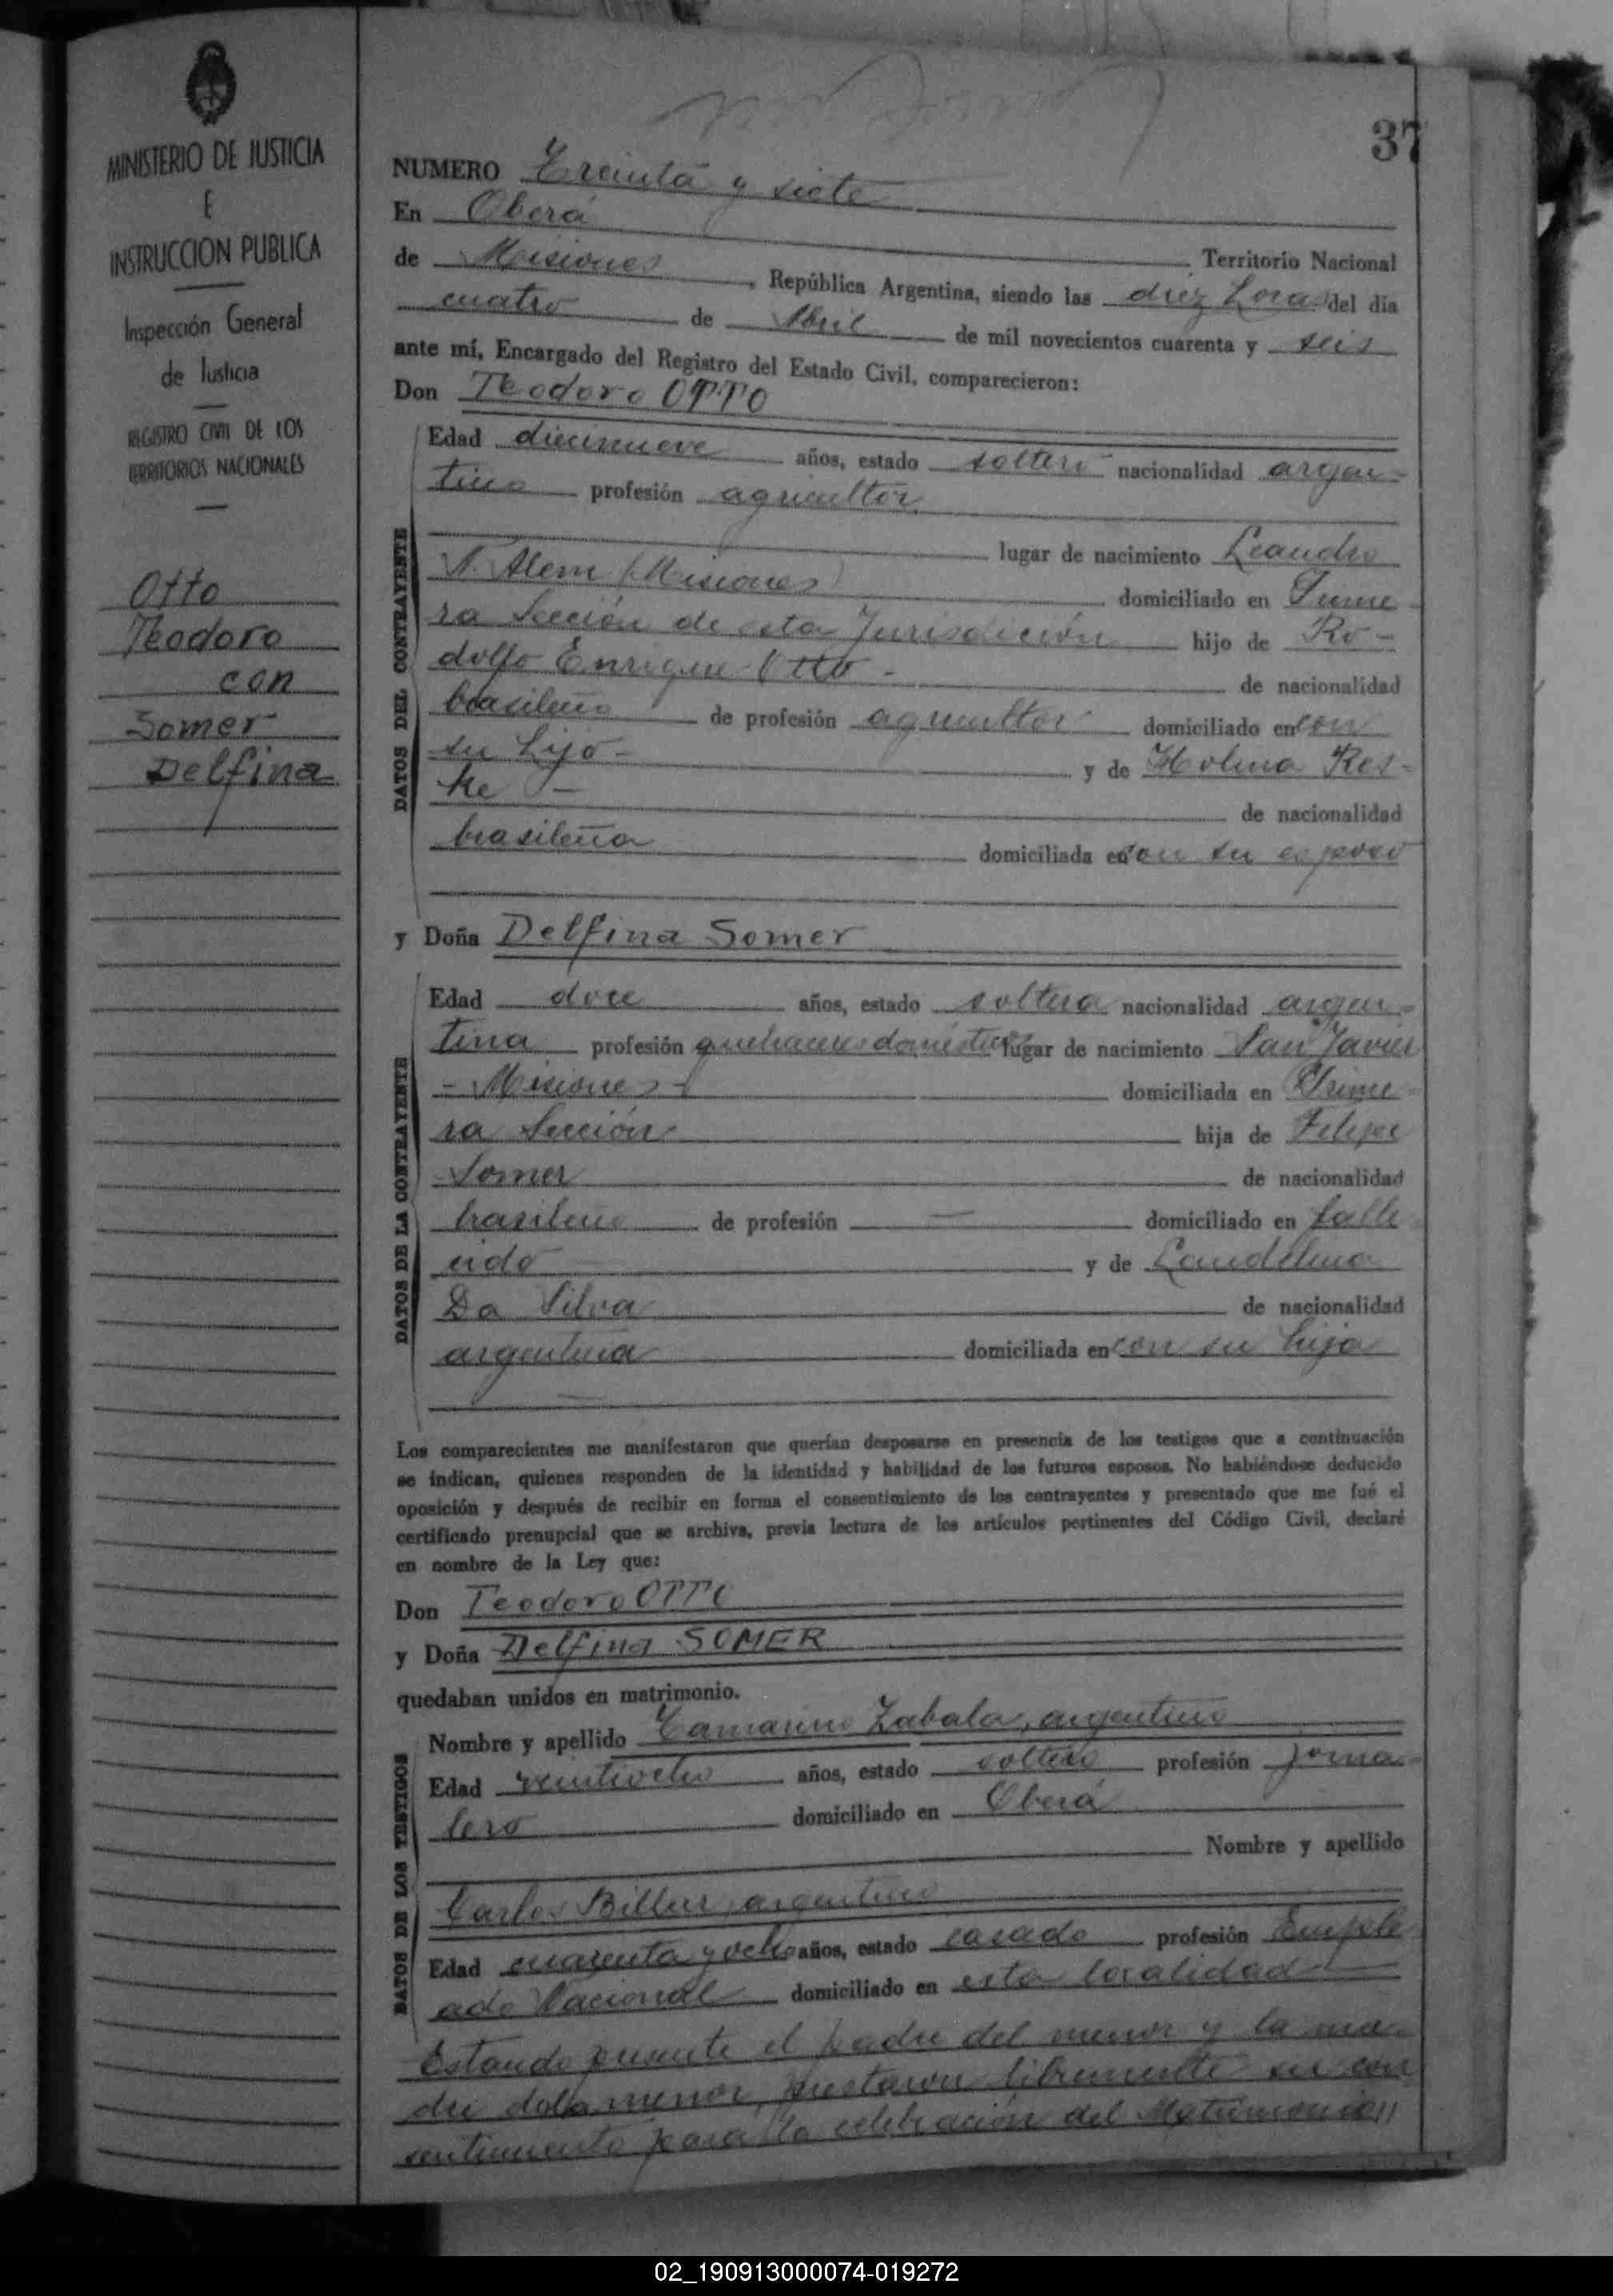 MINISTERIO DE JUSTICIA
E
INSTRUCCION PUBLICA
Inspección General
de Justicia
REGISTRO CIVIL DE LOS
TERRITORIOS NACIONALES
Otto
Teodoro
con
Somer
Delfina
37
NUMERO Treinta y siete
En Oberá
Territorio Nacional
de Misiones, República Argentina, siendo las diez horas del día
cuatro de Abril de mil novecientos cuarenta y seis
ante mí, Encargado del Registro del Estado Civil, comparecieron:
Don Teodoro OTTO
DATOS DEL CONTRAYENTE
Edad diecinueve años, estado soltero nacionalidad argen-
tino profesión agricultor
lugar de nacimiento Leandro
N. Alem (Misiones) domiciliado en Prime-
ra Sección de esta Jurisdición hijo de Ro-
dolfo Enrique Otto - de nacionalidad
brasileño de profesión agricultor domiciliado en con
su hijo - y de Holina Res-
ke - de nacionalidad
brasileña domiciliada en con su esposo
y Doña Delfina Somer
DATOS DE LA CONTRAYENTE
Edad doce años, estado soltera nacionalidad argen-
tina profesión quehaceres domésticos lugar de nacimiento San Javier
- Misiones - domiciliada en Prime-
ra Sección hija de Felipe
Somer de nacionalidad
brasileño de profesión — domiciliado en falle-
cido y de Candelina
Da Silva de nacionalidad
argentina domiciliada en con su hija
Los comparecientes me manifestaron que querían desposarse en presencia de los testigos que a continuación
se indican, quienes responden de la identidad y habilidad de los futuros esposos. No habiéndose deducido
oposición y después de recibir en forma el consentimiento de los contrayentes y presentado que me fué el
certificado prenupcial que se archiva, previa lectura de los artículos pertinentes del Código Civil, declaré
en nombre de la Ley que:
Don Teodoro OTTO
y Doña Delfina SOMER
quedaban unidos en matrimonio.
DATOS DE LOS TESTIGOS
Nombre y apellido Camarino Zabala, argentino
Edad veintiocho años, estado soltero profesión Jorna-
lero domiciliado en Oberá
Nombre y apellido
Carlos Biller, argentino
Edad cuarenta y ocho años, estado casado profesión Emple
ado Nacional domiciliado en esta localidad
Estando presente el padre del menor y la ma-
dre de la menor, prestaron libremente su con
sentimiento para la celebración del Matrimonio
02_190913000074-019272